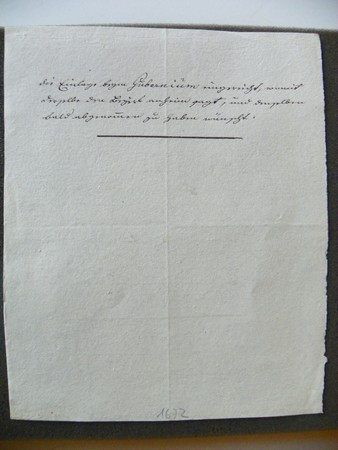 die Einlage beym Gubernium eingereicht, womit
derselbe den Bezirk anheim sagt, und denselben
bald abgenommen zu haben wünscht.
1672